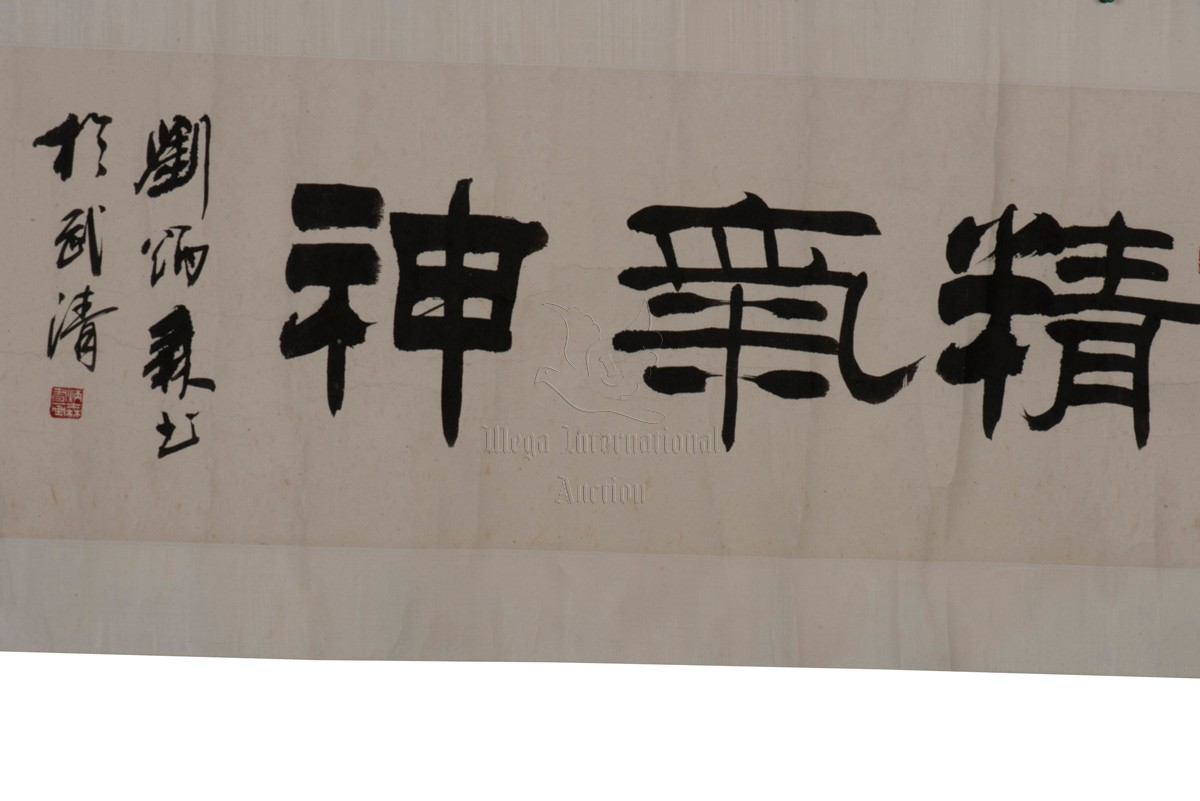 精氣神
劉炳森书
於武清
炳森書畫
Wega International
Auction